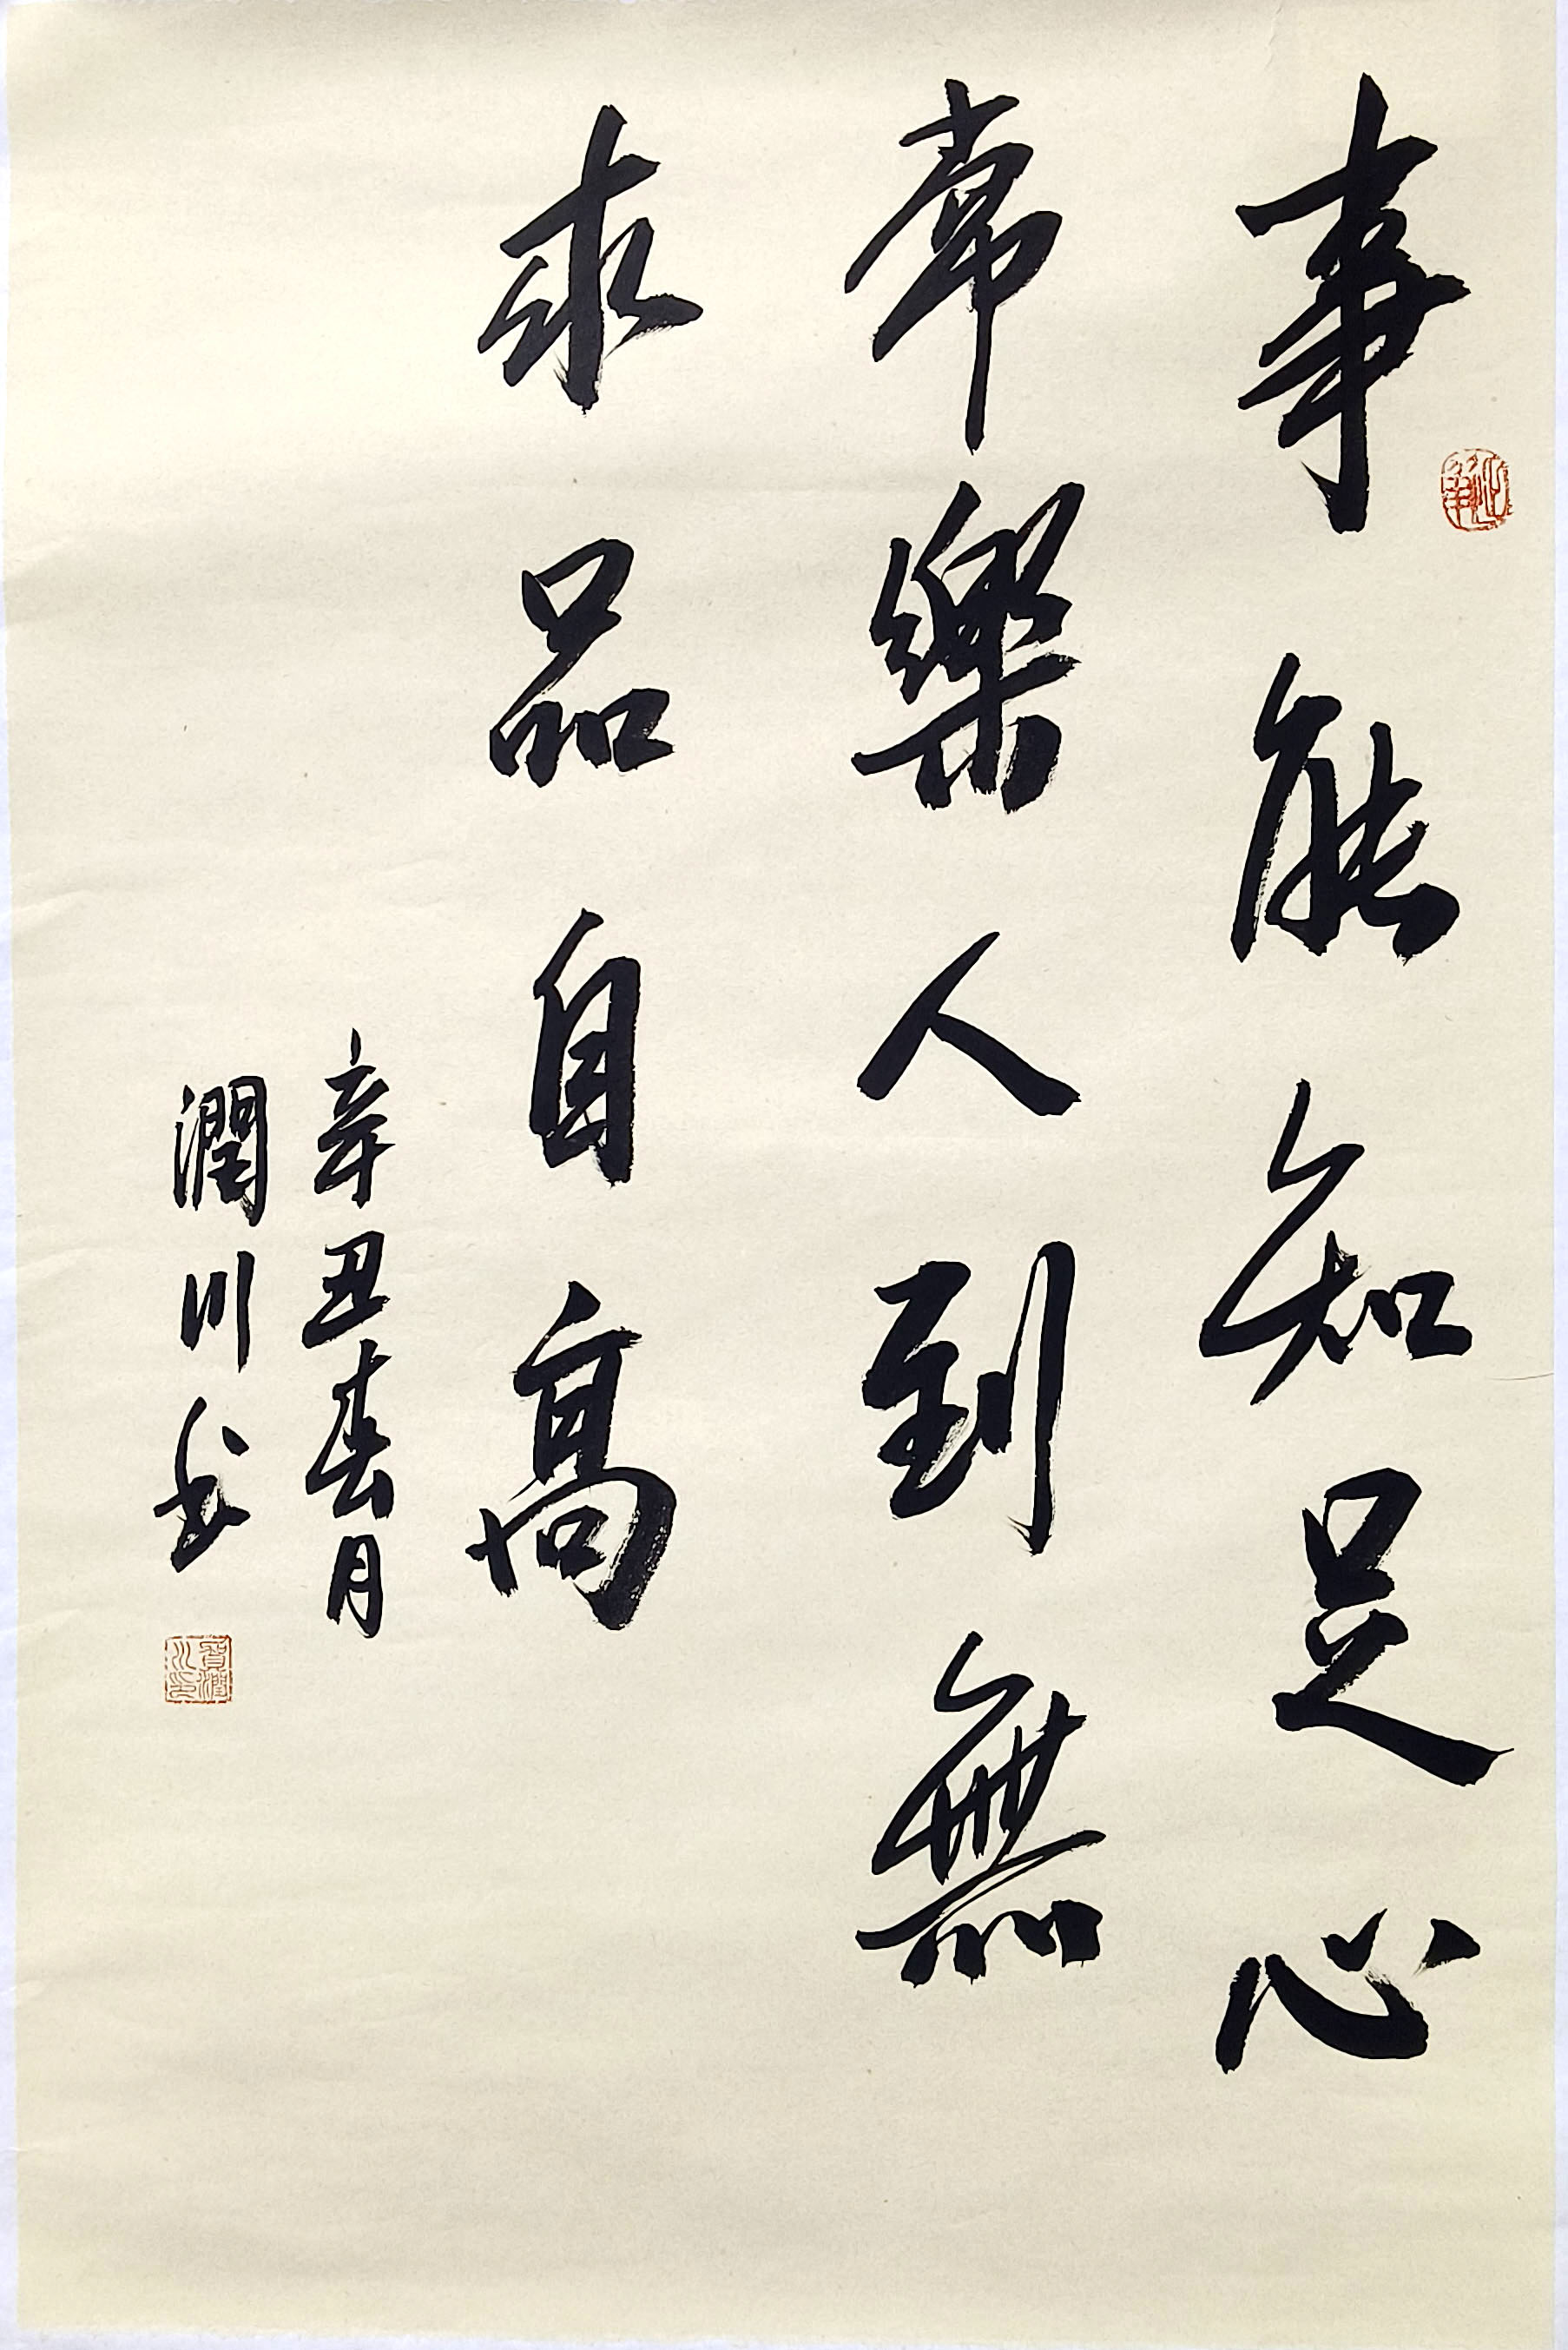 事能知足心
常樂人到無
求品自高
辛丑春月
潤川書